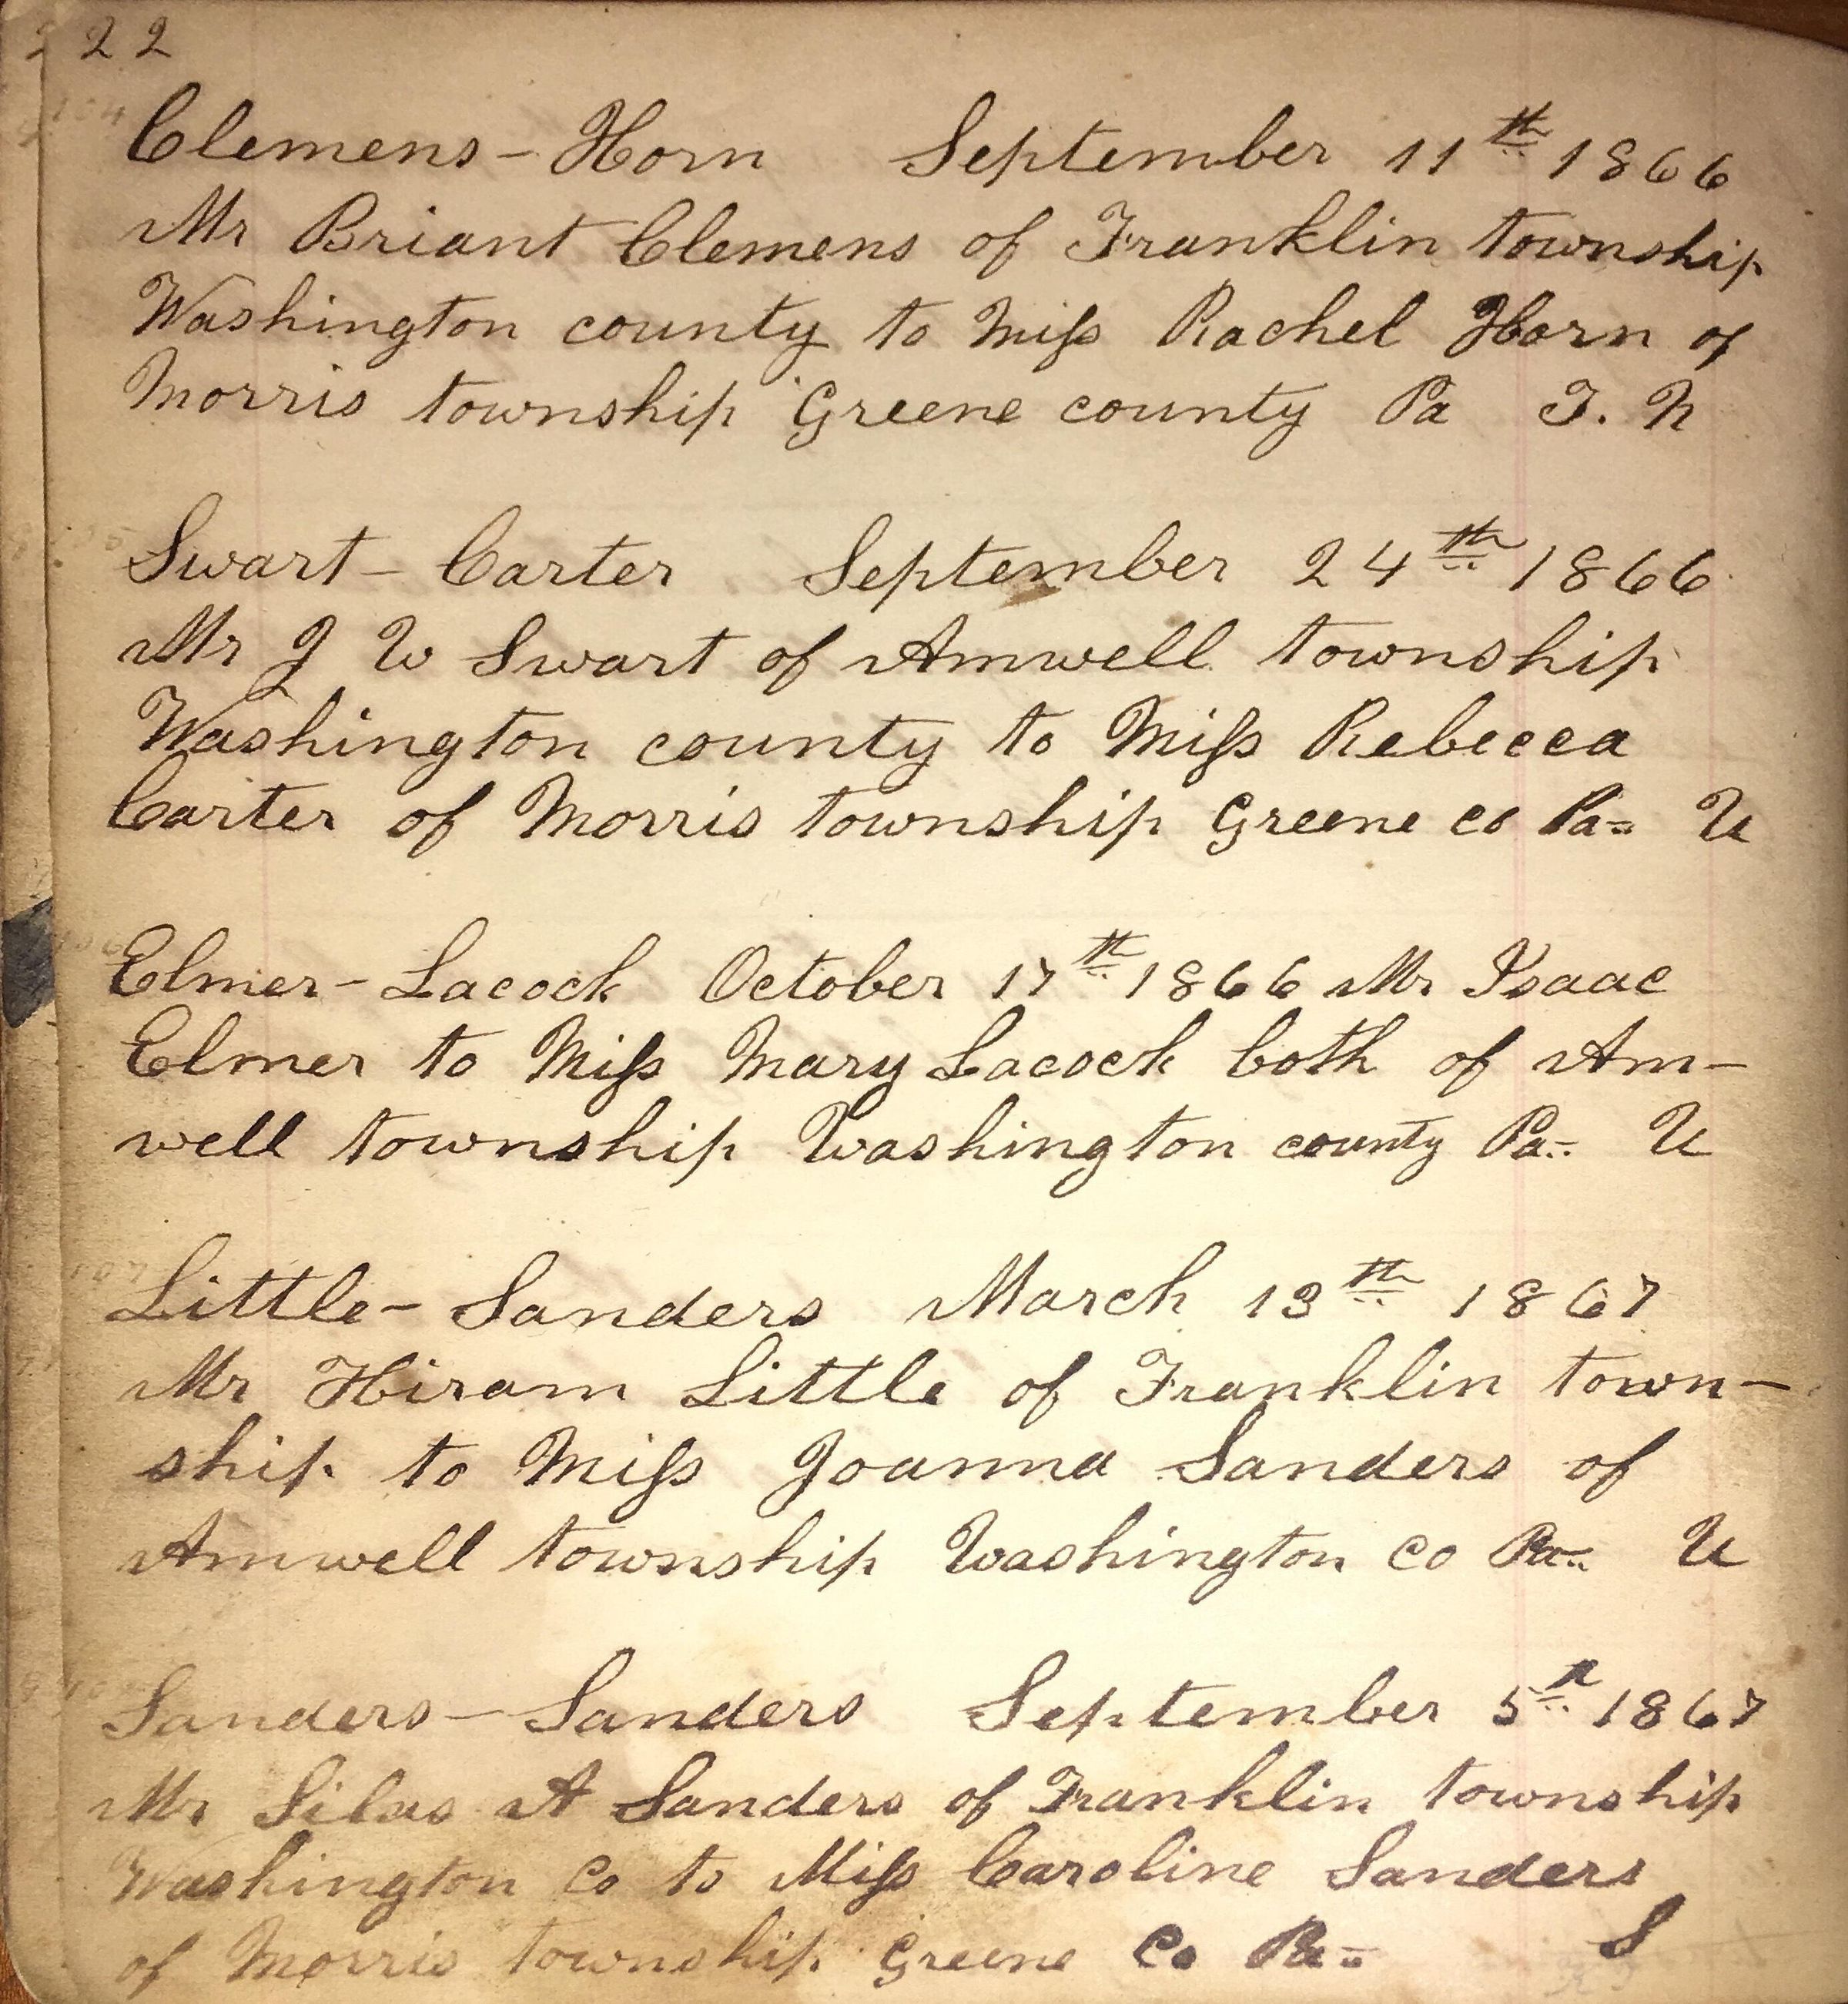 222
104
Clemens - Horn September 11th 1866
Mr Briant Clemens of Franklin township
Washington county to Miss Rachel Horn of
Morris township Greene county Pa T. N
105
Swart - Carter September 24th 1866
Mr J W Swart of Amwell township
Washington county to Miss Rebecca
Carter of Morris township Greene co Pa= U
106
Elmer - Lacock October 17th 1866 Mr Isaac
Elmer to Miss Mary Lacock both of Am-
well township Washington county Pa= U
107
Little - Sanders March 13th 1867
Mr Hiram Little of Franklin town-
ship to Miss Joanna Sanders of
Amwell township Washington co Pa= U
Sanders - Sanders September 5th 1867
Mr Silas A Sanders of Franklin township
Washington Co to Miss Caroline Sanders
of Morris township Greene Co Pa= S